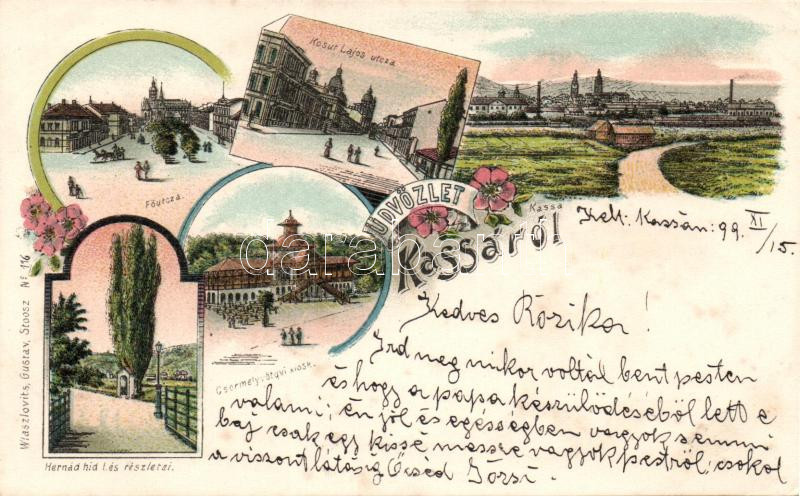 Kosut Lajos utcza
Főutcza.
ÜDVÖZLET
Kassáról
Kassa
Kelt: Kassán: 99 XI/15.
Kedves Rozika!
Ird meg mikor voltál bent pesten
és hogy a papa készülődéséből lett e
valami; én jól és egésségben vagyok semmi
baj csak egy kissé messze vagyok pestről, csokol
a viszontlátásig Öcséd Görsi.
Csermely-ötgyi kiosk.
Hernád hid l. és részletei.
Wlaszlovits, Gustav, Stoosz No 116
darabanth.com